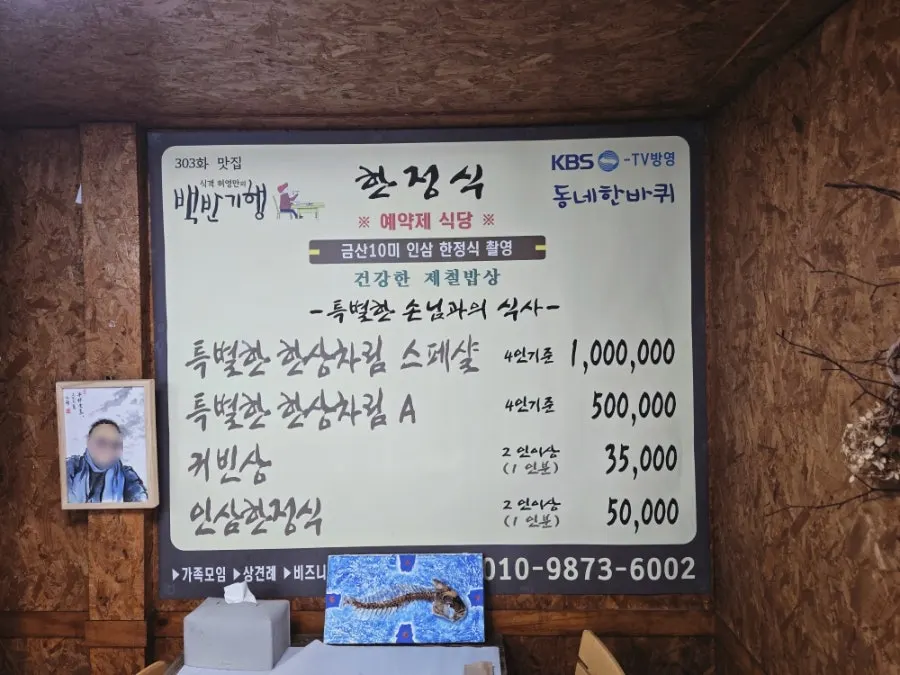 303화 맛집
식객 허영만의
백반기행
한정식
KBS -TV방영
동네한바퀴
※ 예약제 식당 ※
금산10미 인삼 한정식 촬영
건강한 제철밥상
-특별한 손님과의 식사-
특별한 한상차림 스페샬 4인기준 1,000,000
특별한 한상차림 A 4인기준 500,000
커빈상 2인이상 (1인분) 35,000
인삼한정식 2인이상 (1인분) 50,000
▶가족모임 ▶상견례 ▶비즈니 010-9873-6002